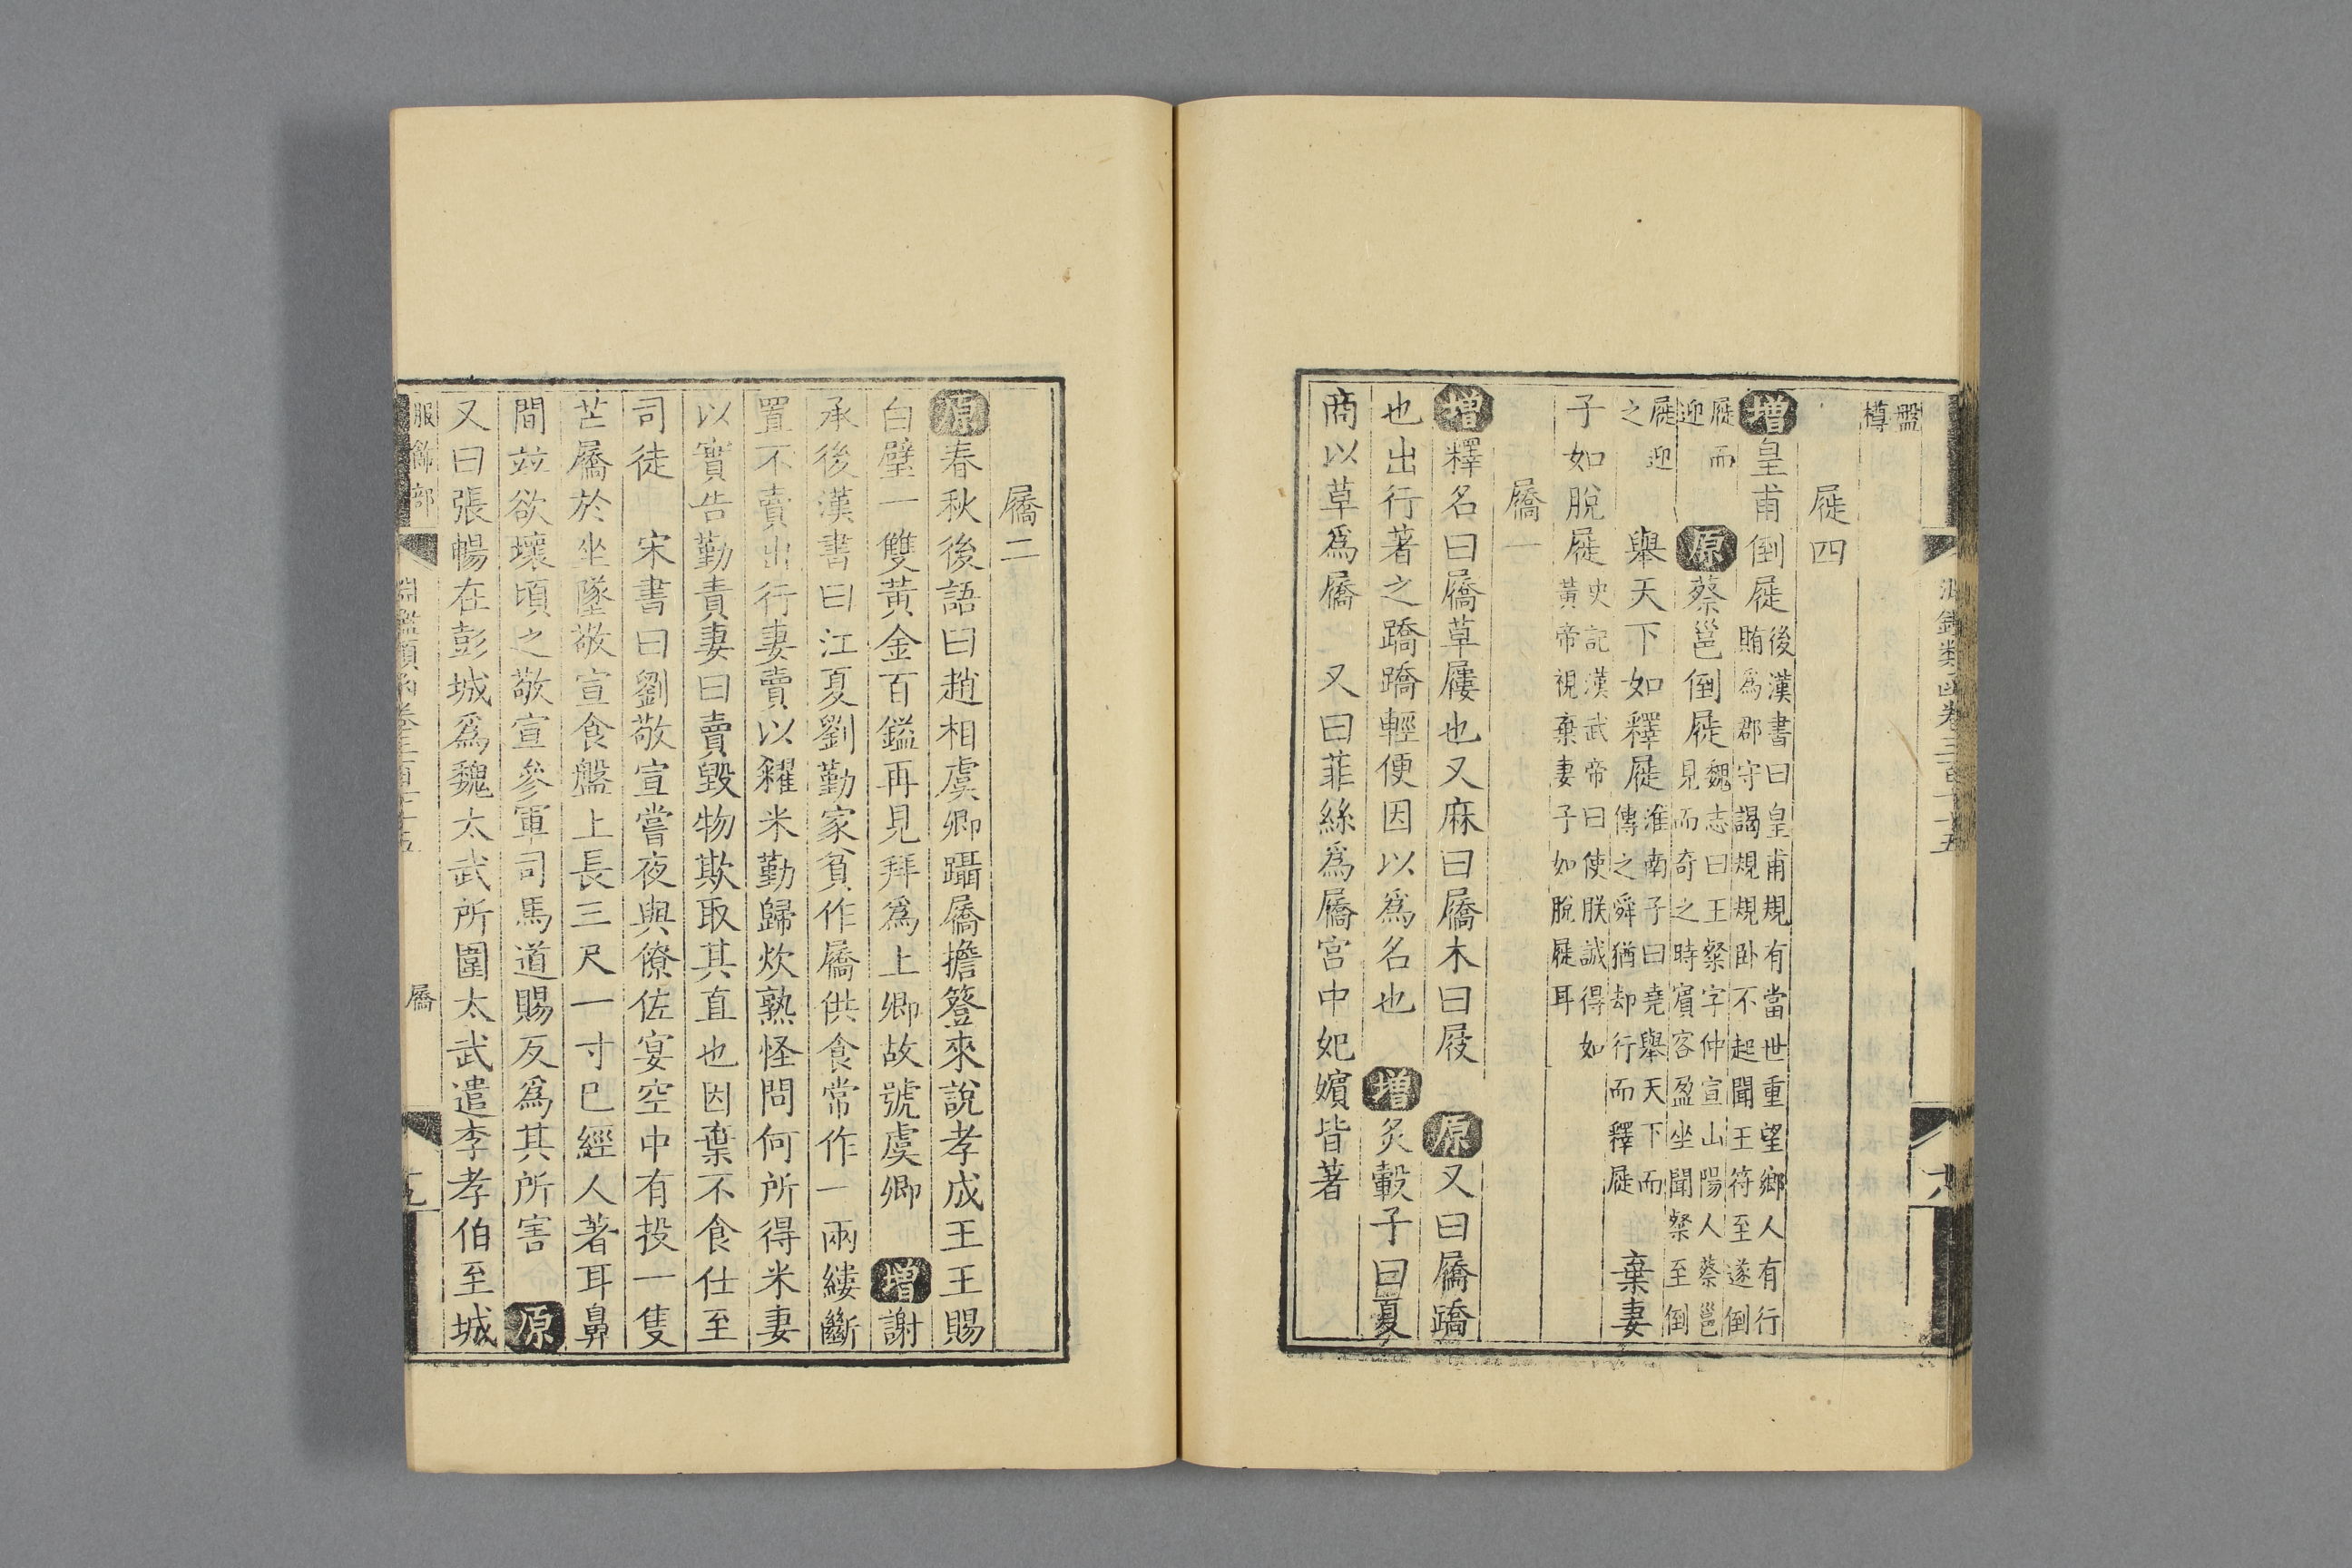 淵鑑類函卷三百七十五 六
盤樽
屣四
增皇甫倒屣後漢書曰皇甫規有當世重望鄉人有行賄爲郡守謁規規卧不起聞王符至遂倒
屣而迎 原蔡邕倒屣魏志曰王粲字仲宣山陽人蔡邕見而奇之時賓客盈坐聞粲至倒
屣迎之 舉天下如釋屣淮南子曰堯舉天下而傳之舜猶却行而釋屣 棄妻
子如脫屣史記漢武帝曰使朕誠得如黃帝視棄妻子如脫屣耳
屩一
增釋名曰屩草屨也又麻曰屩木曰屐 原又曰屩蹻
也出行著之蹻蹻輕便因以爲名也 增炙轂子曰夏
商以草爲屩 又曰菲絲爲屩宮中妃嬪皆著
屩二
原春秋後語曰趙相虞卿躡屩擔簦來說孝成王王賜
白璧一雙黃金百鎰再見拜爲上卿故號虞卿 增謝
承後漢書曰江夏劉勤家貧作屩供食常作一兩縷斷
置不賣出行妻賣以糴米勤歸炊熟怪問何所得米妻
以實告勤責妻曰賣毀物欺取其直也因棄不食仕至
司徒 宋書曰劉敬宣嘗夜與僚佐宴空中有投一隻
芒屩於坐墜敬宣食盤上長三尺一寸已經人著耳鼻
間竝欲壞頃之敬宣參軍司馬道賜反爲其所害 原
又曰張暢在彭城爲魏太武所圍太武遣李孝伯至城
服飾部 淵鑑類函卷三百七十五 屩